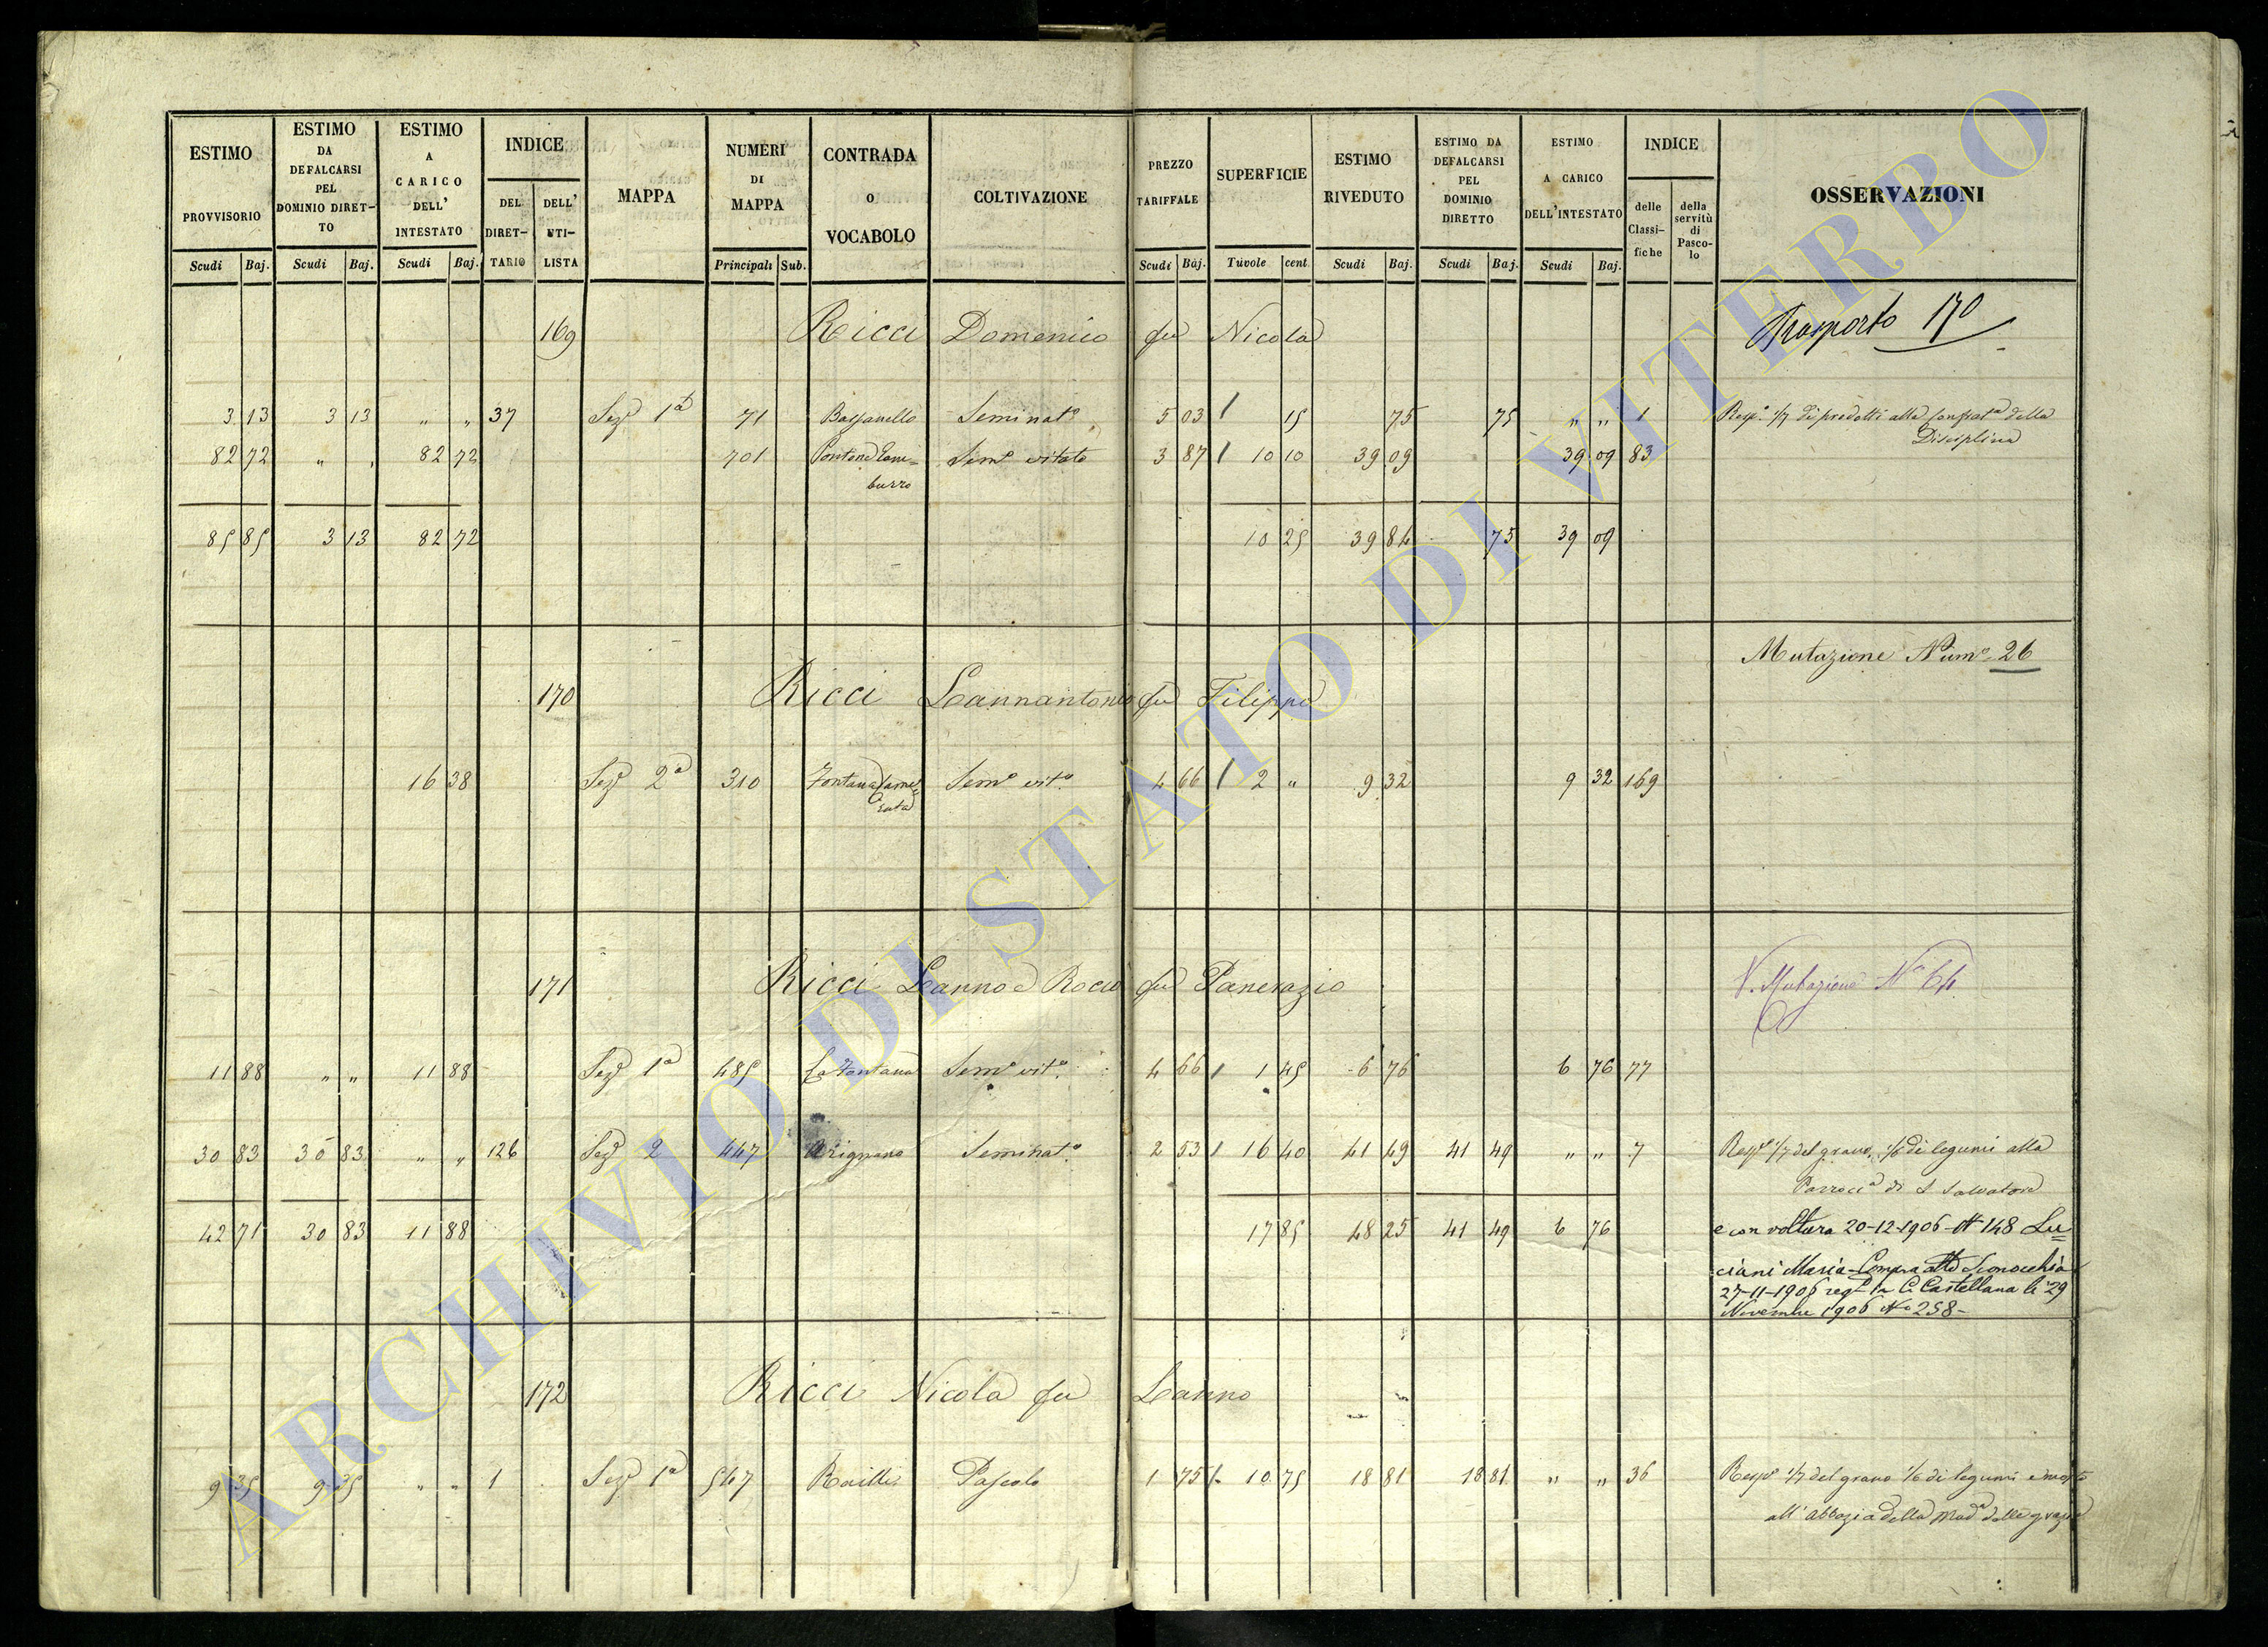 ESTIMO PROVVISORIO Scudi Baj.
ESTIMO DA DEFALCARSI PEL DOMINIO DIRET-TO Scudi Baj.
ESTIMO A CARICO DELL' INTESTATO Scudi Baj.
INDICE DEL DIRET-TARIO DELL' UTI-LISTA
MAPPA
NUMERI DI MAPPA Principali Sub.
CONTRADA o VOCABOLO
COLTIVAZIONE
PREZZO TARIFFALE Scudi Baj.
SUPERFICIE Tavole cent.
ESTIMO RIVEDUTO Scudi Baj.
ESTIMO DA DEFALCARSI PEL DOMINIO DIRETTO Scudi Baj.
ESTIMO A CARICO DELL'INTESTATO Scudi Baj.
INDICE delle Classi-fiche della servitù di Pasco-lo
OSSERVAZIONI
169 Ricci Domenico fu Nicola Trasporto 170
3 13 3 13 " " 37 Sezᵉ 1ª 71 Bassanello Seminatᵒ 5 03 / 15 75 75 " " 1 Respᵉ 1/7 di prodotti alla Confratª della
Disciplina
82 72 " " 82 72 701 Semᵒ vitato 3 87 / 10 10 39 09 39 09 83
burro
85 85 3 13 82 72 10 25 39 84 75 39 09
Mutazione Numᵒ 26
170 Ricci Sannantonio fu Filippo
16 38 Sezᵉ 2ª 310 Fontana Semᵒ vitᵒ 4 66 / 2 " 9 32 9 32 169
171 Ricci Sanno e Rocco fu Pancrazio V. Mutazione Nᵒ 64
11 88 " " 11 88 Sezᵉ 1ª 485 La Fontana Semᵒ vitᵒ 4 66 / 1 45 6 76 6 76 77
30 83 30 83 " " 126 Sezᵉ 2 447 Arignano Seminatᵒ 2 53 / 16 40 41 49 41 49 " " 7 Respᵉ 1/7 del grano, 1/6 di legumi alla
Parrocciª di S Salvatore
42 71 30 83 11 88 17 85 48 25 41 49 6 76 e con voltura 20-12-1906 - N 148 Lu=
ciani Maria - Compra atto Sconocchia
27-11-1906 regᵗᵒ in C. Castellana li 29
Novembre 1906 Nᵒ 258 -
172 Ricci Nicola fu Sanno
9 35 9 35 " " 1 Sezᵉ 1ª 547 Pascolo 1 75 / 10 75 18 81 18 81 " " 36 Respᵉ 1/7 del grano 1/6 di legumi e mosto
all'abbazia della Madª delle grazie
ARCHIVIO DI STATO DI VITERBO